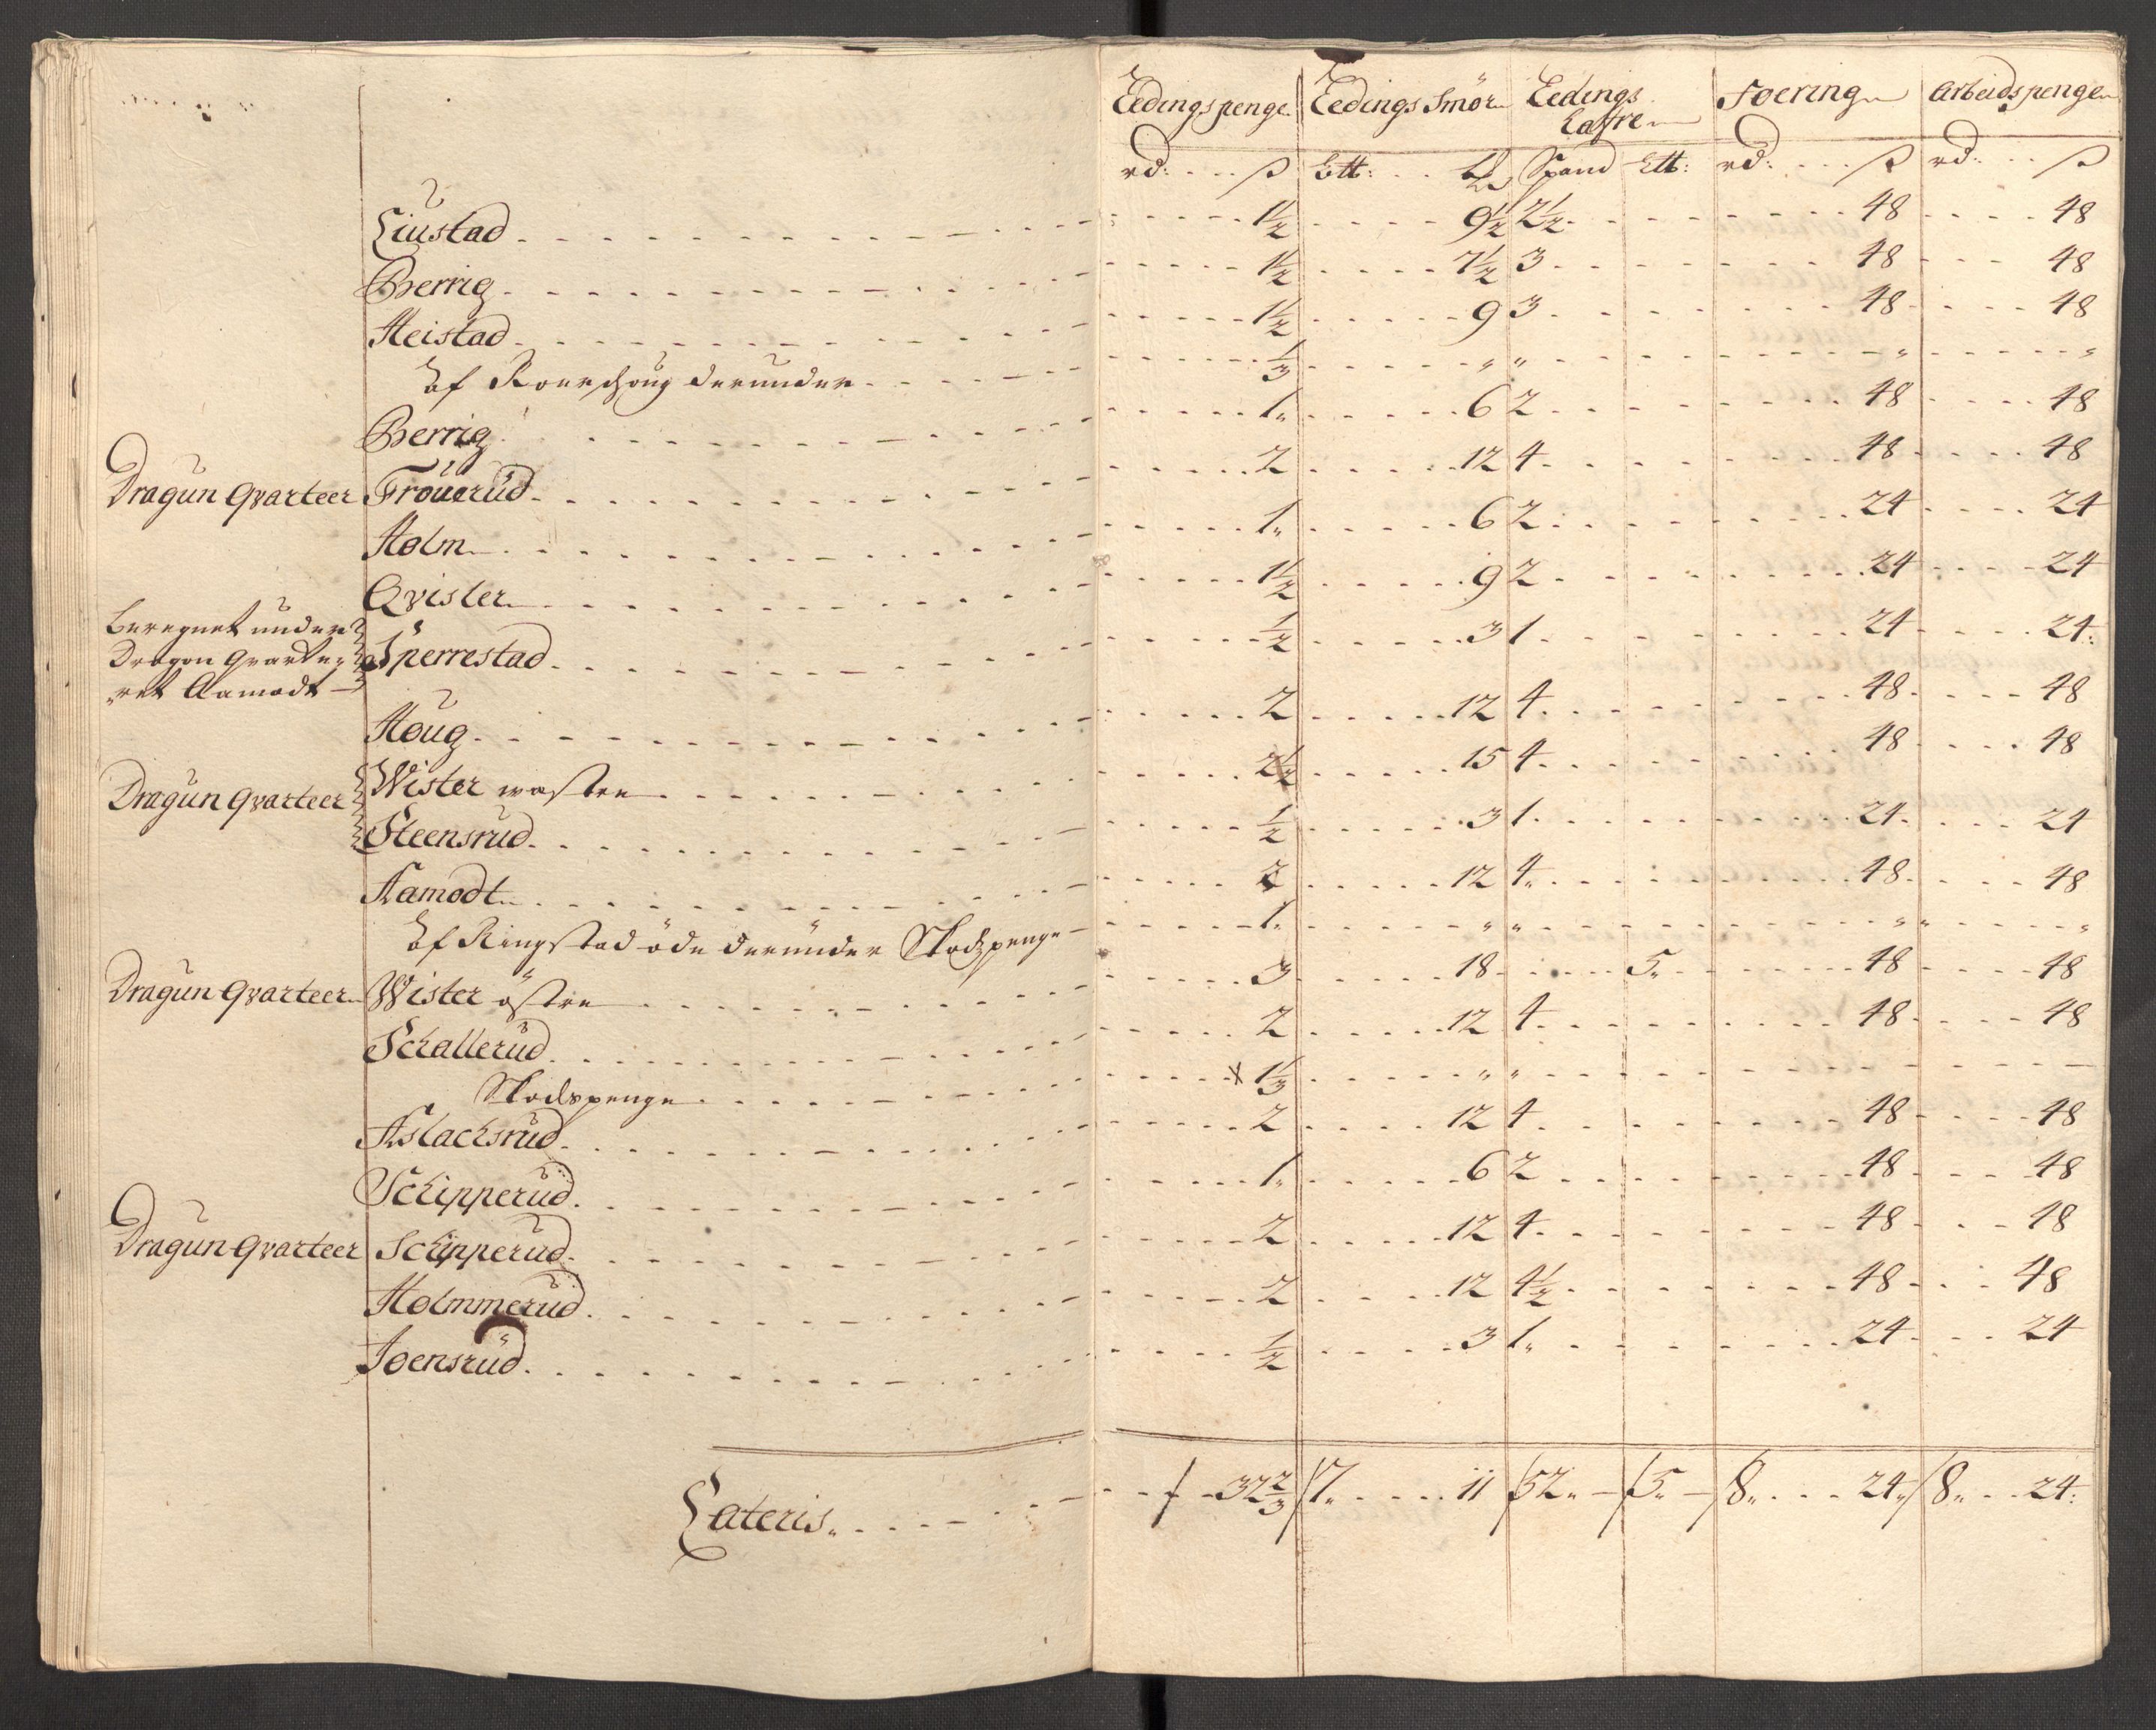 Leedingspenge Leedings Smör Leedings Foering Arbeidspenge
Hafre
rd: ß Spand rd: ß rd: ß
Liustad 1½ 9½ 2½ 48 48
Berrig 1½ 7½ 3 48 48
Heistad 1½ 9 3 48 48
af derunder ⅓ " " " "
Berrig 1" 6 2 48 48
Dragun Qvarteer Fröuerud 2 12 4 48 48
Holm 1" 6 2 24 24
Qvisler 1½ 9 2 24 24
Beregnet under
Dragon Qvartee- Sperrestad ½ 3 1 24 24:
ret Aamodt
Houg 2 12 4 48 48
Dragun Qvarteer Wister wastre 2½ 15 4 48 48
Steensrud ½ 3 1 24 24
Aamodt 2 12 4" 48 48
af Ringstad öde derunder Skodspenge 1" " " " "
Dragun Qvarteer Wister östre 3 18 5" 48 48
Schallerud 2 12 4 48 48
Skodspenge 1⅓ " "
Aslachsrud 2 12 4 48 48
Schipperud 1" 6 2 48 48
Dragun Qvarteer Schipperud 2 12 4 48 48
Holmmerud 2 12 4½ 48 48
Joensrud ½ 3 1" 24 24
Lateris" 32⅔ 7" 11 52" 5" 8" 24" 8" 24: